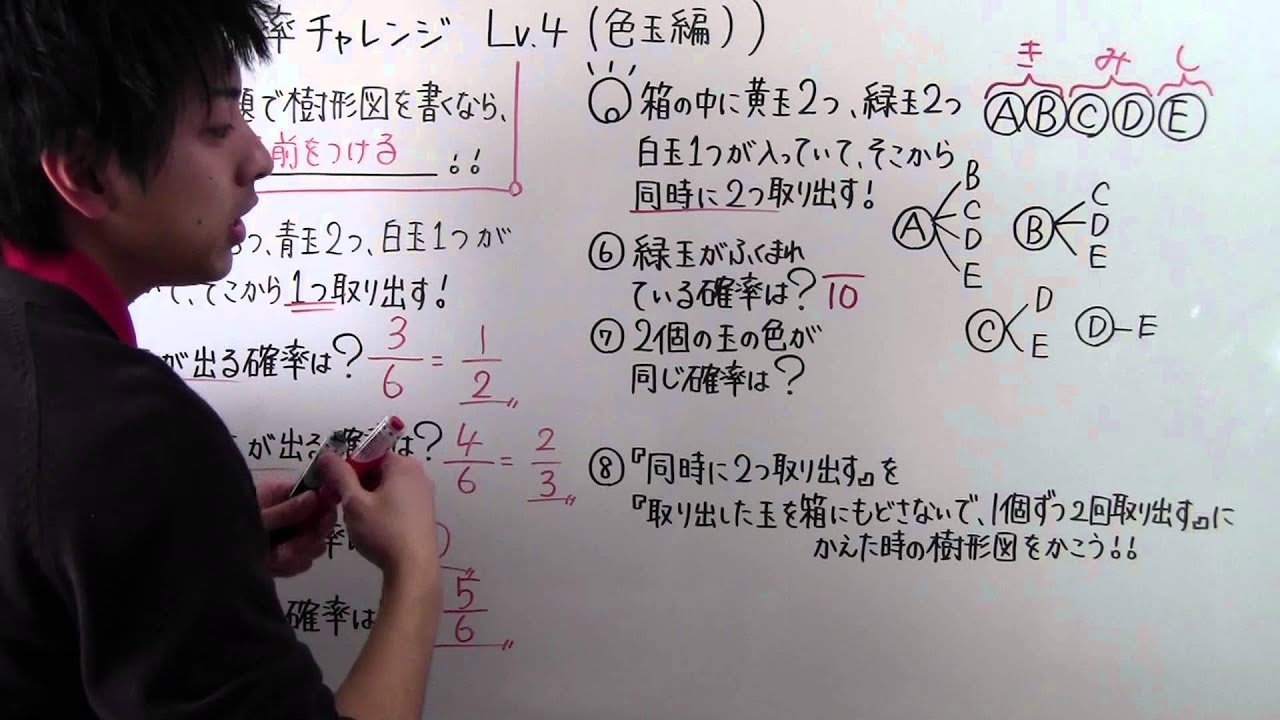 率チャレンジ Lv.4 (色玉編))
題で樹形図を書くなら、
前をつける!!
つ、青玉2つ、白玉1つが
て、そこから1つ取り出す!
が出る確率は? 3/6 = 1/2
が出る確率は? 4/6 = 2/3
確率は 5/6
箱の中に黄玉2つ、緑玉2つ
白玉1つが入っていて、そこから
同時に2つ取り出す!
⑥ 緑玉がふくまれ
ている確率は? /10
⑦ 2個の玉の色が
同じ確率は?
⑧『同時に2つ取り出す』を
『取り出した玉を箱にもどさないで、1個ずつ2回取り出す』に
かえた時の樹形図をかこう!!
き み し
Ⓐ Ⓑ Ⓒ Ⓓ Ⓔ
Ⓐ B C D E
Ⓑ C D E
Ⓒ D E
Ⓓ E